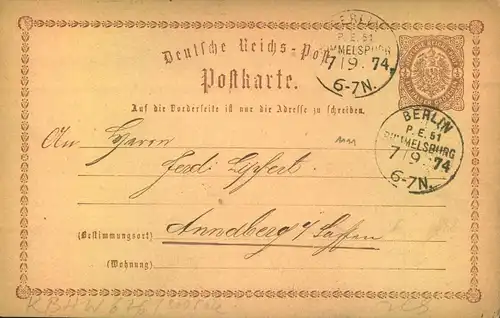 BERLIN
P. E. 51
RUMMELSBURG
7 9. 74.
6-7N.
Deutsche Reichs-Post
Postkarte.
Auf die Vorderseite ist nur die Adresse zu schreiben.
BERLIN
P. E. 51
RUMMELSBURG
7 9. 74
6-7N.
An Herrn
Ferd.
Annaberg
(Bestimmungsort)
(Wohnung)